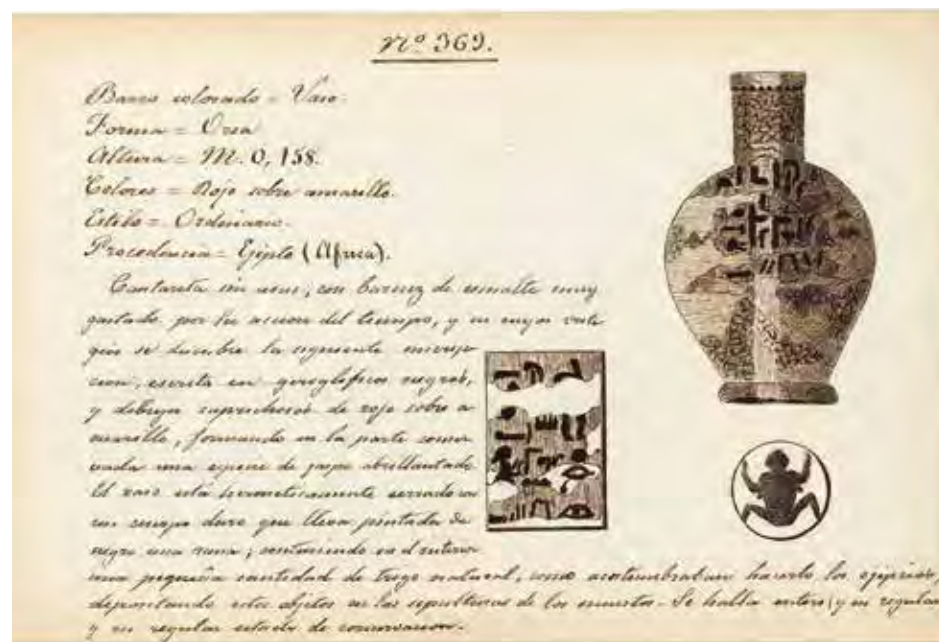 Nº 369.
Barro colorado = Vaso.
Forma = Orza
Altura = M. 0,158.
Colores = Rojo sobre amarillo.
Estilo = Ordinario.
Procedencia = Ejipto (Africa).
Cantareta sin asas, con barniz de esmalte muy
gastado por la accion del tiempo, y en cuyos vesti
gios se descubre la siguiente inscrip
cion, escrita en geroglificos negros,
y dibujos caprichosos de rojo sobre a
marillo, formando en la parte conser
vada una especie de jaspe abrillantado.
El vaso está hermeticamente cerrado con
un cuerpo duro que lleva pintada de
negro una rana; conteniendo en el interior
una pequeña cantidad de trigo natural, como acostumbraban hacerlo los ejipcios,
depositando estos objetos en las sepulturas de los muertos. Se halla entero y en regular
y en regular estado de conservacion.